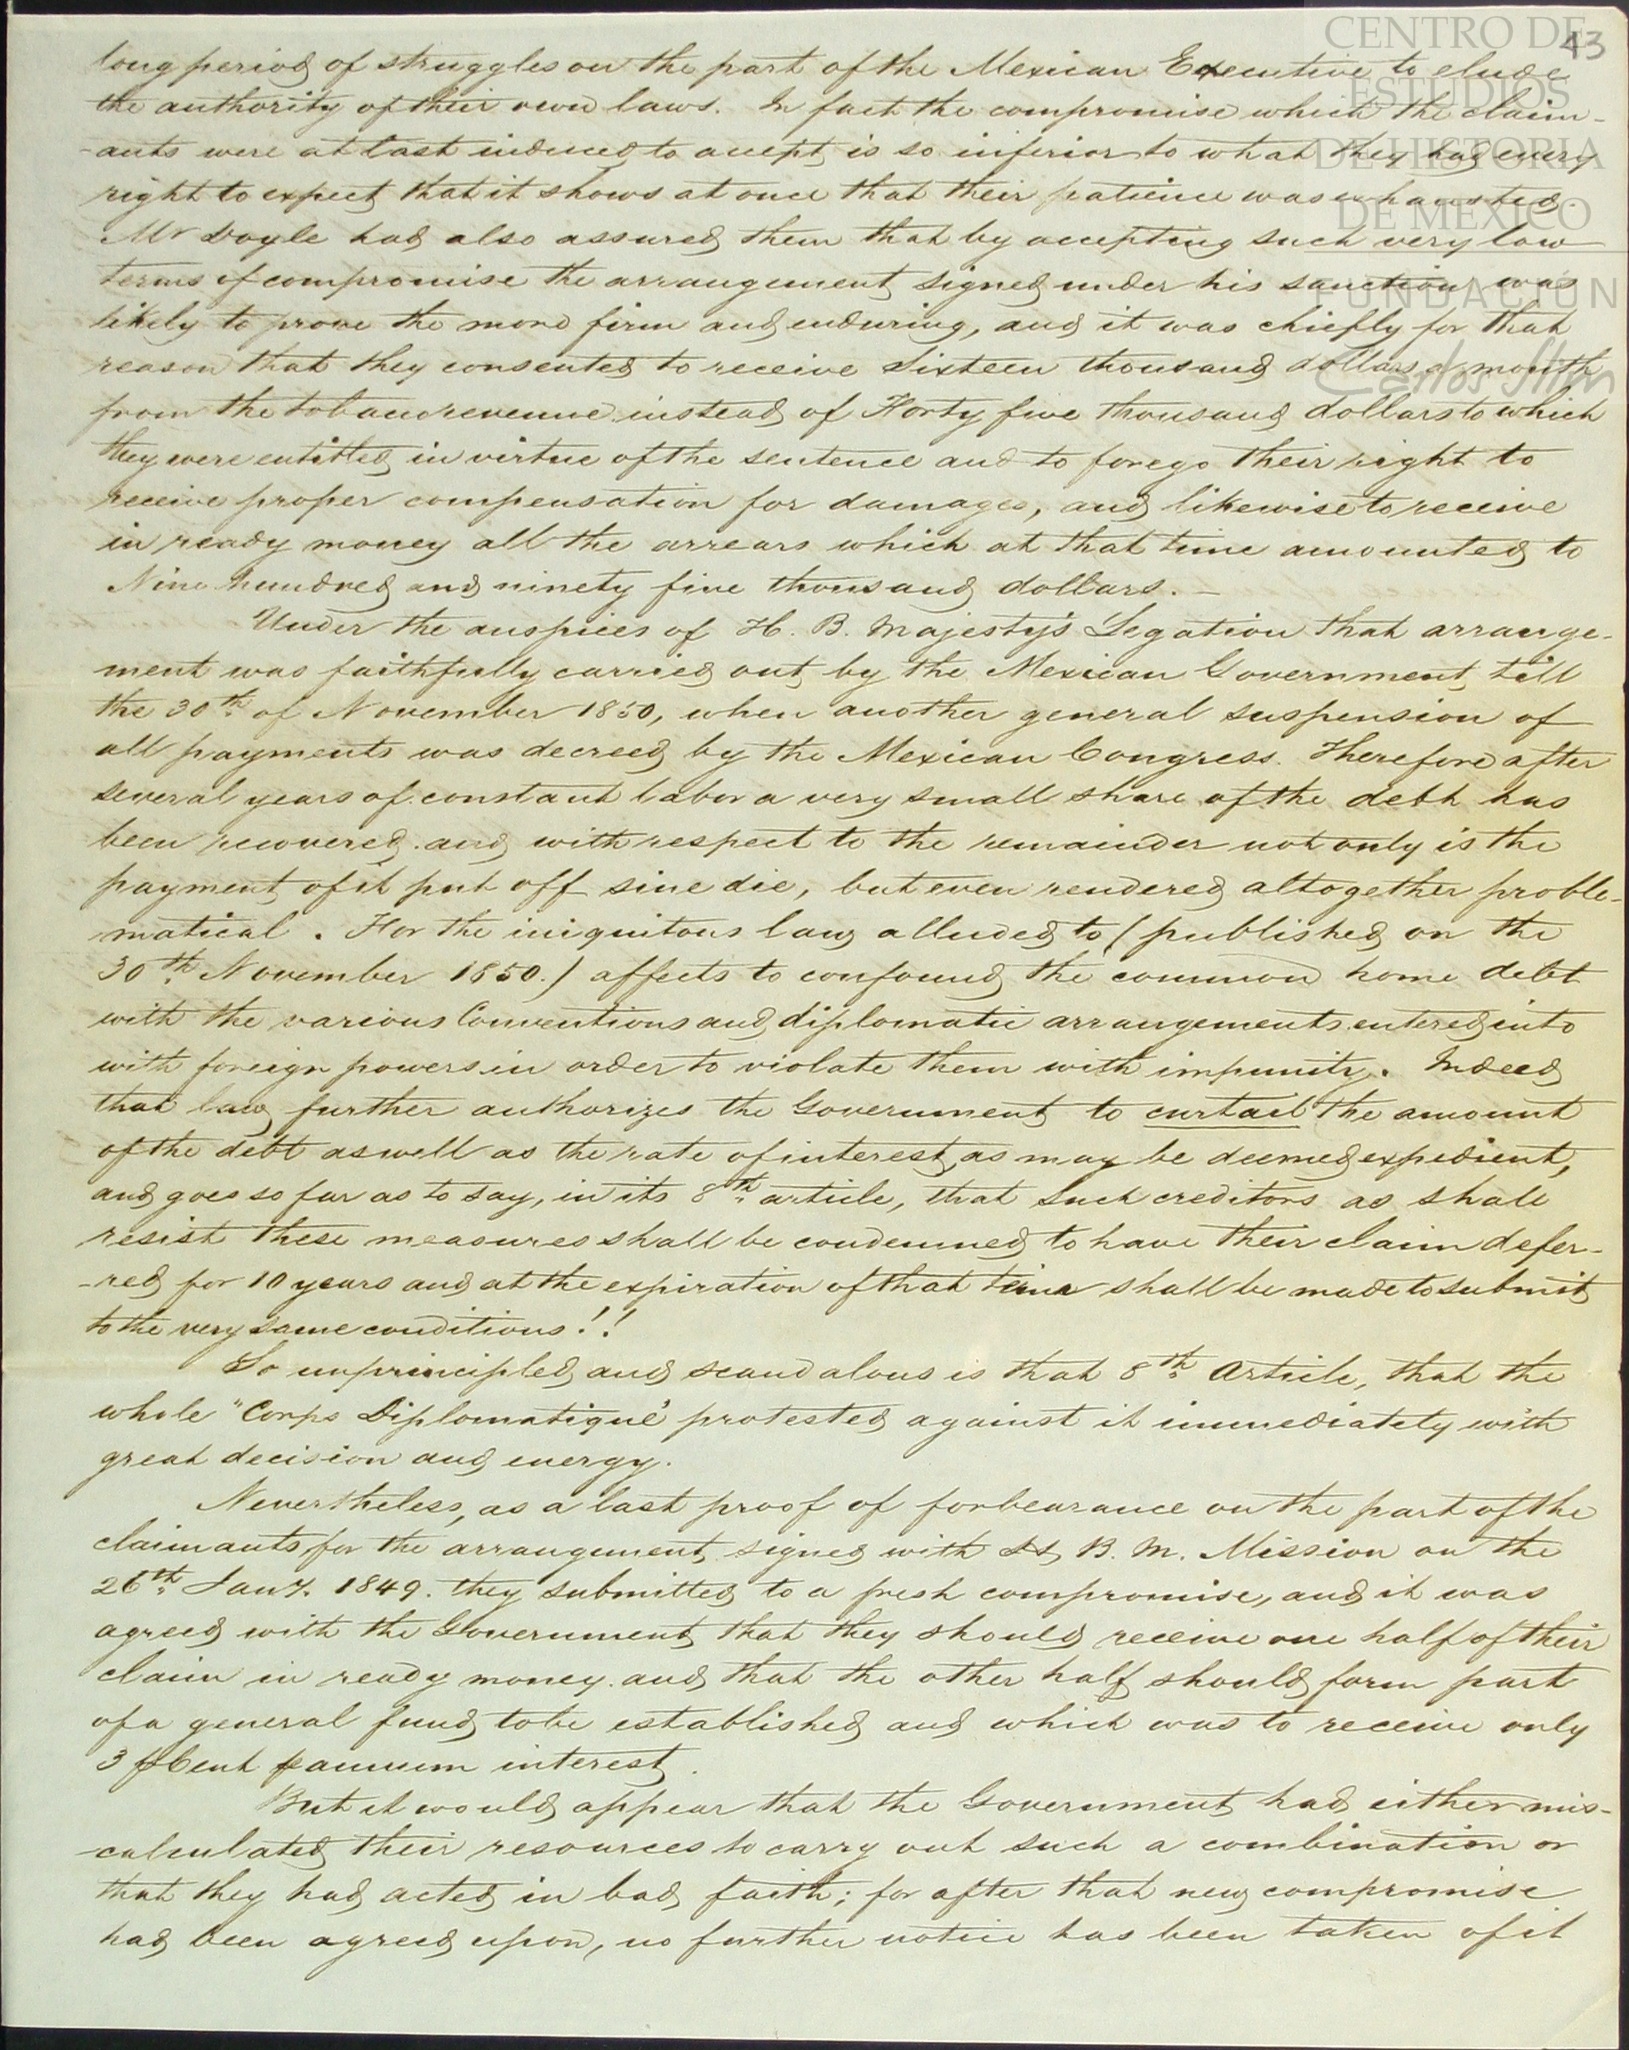 43
CENTRO DE
ESTUDIOS
DE HISTORIA
DE MEXICO
FUNDACIÓN
Carlos Slim
long period of struggles on the part of the Mexican Executive to elude
the authority of their own laws. In fact the compromise which the claim-
-ants were at last induced to accept is so inferior to what they had every
right to expect that it shows at once that their patience was exhausted.
Mr Doyle had also assured them that by accepting such very low
terms of compromise the arrangement signed under his sanction was
likely to prove the more firm and enduring, and it was chiefly for that
reason that they consented to receive Sixteen thousand dollars a month
from the tobacco revenue instead of Forty five thousand dollars to which
they were entitled in virtue of the sentence and to forego their right to
receive proper compensation for damages, and likewise to receive
in ready money all the arrears which at that time amounted to
Nine hundred and ninety five thousand dollars. —
Under the auspices of H. B. Majesty's Legation that arrange-
ment was faithfully carried out by the Mexican Government till
the 30th. of November 1850, when another general suspension of
all payments was decreed by the Mexican Congress. Therefore after
several years of constant labor a very small share of the debt has
been recovered and with respect to the remainder not only is the
payment of it put off sine die, but even rendered altogether proble-
matical. For the iniquitous law alluded to (published on the
30th. November 1850.) affects to confound the common home debt
with the various Conventions and diplomatic arrangements entered into
with foreign powers in order to violate them with impunity. Indeed
that law further authorizes the Government to curtail the amount
of the debt as well as the rate of interest, as may be deemed expedient,
and goes so far as to say, in its 8th. article, that such creditors as shall
resist these measures shall be condemned to have their claim defer-
-red for 10 years and at the expiration of that time shall be made to submit
to the very same conditions!!
So unprincipled and scandalous is that 8th. Article, that the
whole "Corps Diplomatique" protested against it immediately with
great decision and energy.
Nevertheless, as a last proof of forbearance on the part of the
claimants, for the arrangement signed with H. B. M. Mission on the
26th. Jany. 1849. they submitted to a fresh compromise, and it was
agreed with the Government that they should receive one half of their
claim in ready money and that the other half should form part
of a general fund to be established and which was to receive only
3 p Cent p annum interest.
But it would appear that the Government had either mis-
-calculated their resources to carry out such a combination or
that they had acted in bad faith; for after that new compromise
had been agreed upon, no further notice has been taken of it